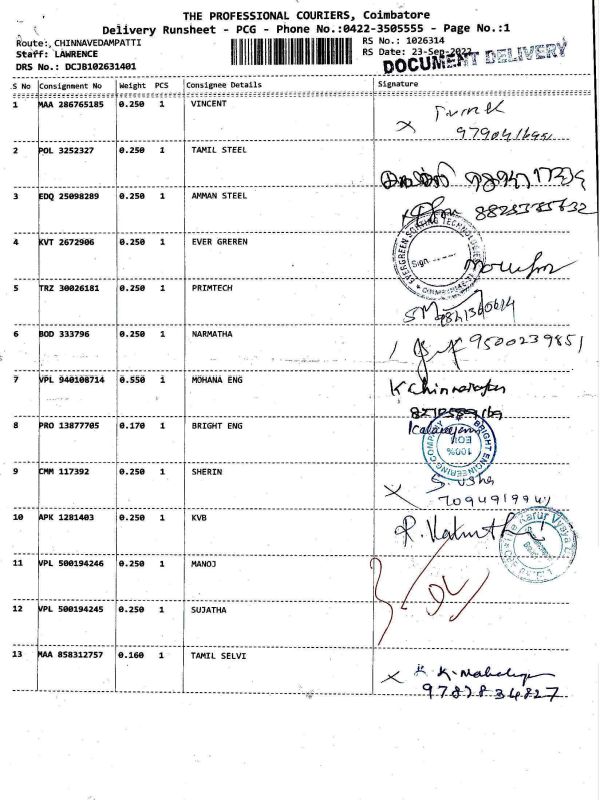 THE PROFESSIONAL COURIERS, Coimbatore
Delivery Runsheet - PCG - Phone No.:0422-3505555 - Page No.:1
Route: CHINNAVEDAMPATTI
Staff: LAWRENCE
DRS No.: DCJB102631401
RS No.: 1026314
RS Date: 23-Sep-2023
DOCUMENT DELIVERY
S No Consignment No Weight PCS Consignee Details Signature
1 MAA 286765185 0.250 1 VINCENT
2 POL 3252327 0.250 1 TAMIL STEEL
3 EDQ 25098289 0.250 1 AMMAN STEEL
4 KVT 2672906 0.250 1 EVER GREREN
EVERGREEN SORTING TECHNOLOGIES
Sign
5 TRZ 30026181 0.250 1 PRIMTECH
SM
6 BOD 333796 0.250 1 NARMATHA
9500239851
7 VPL 940108714 0.550 1 MOHANA ENG
8 PRO 13877705 0.170 1 BRIGHT ENG
BRIGHT ENGINEERING COMPANY
100%
EOU
9 CMM 117392 0.250 1 SHERIN
S. Usha
10 APK 1281403 0.250 1 KVB
11 VPL 500194246 0.250 1 MANOJ
12 VPL 500194245 0.250 1 SUJATHA
13 MAA 858312757 0.160 1 TAMIL SELVI
9787834827